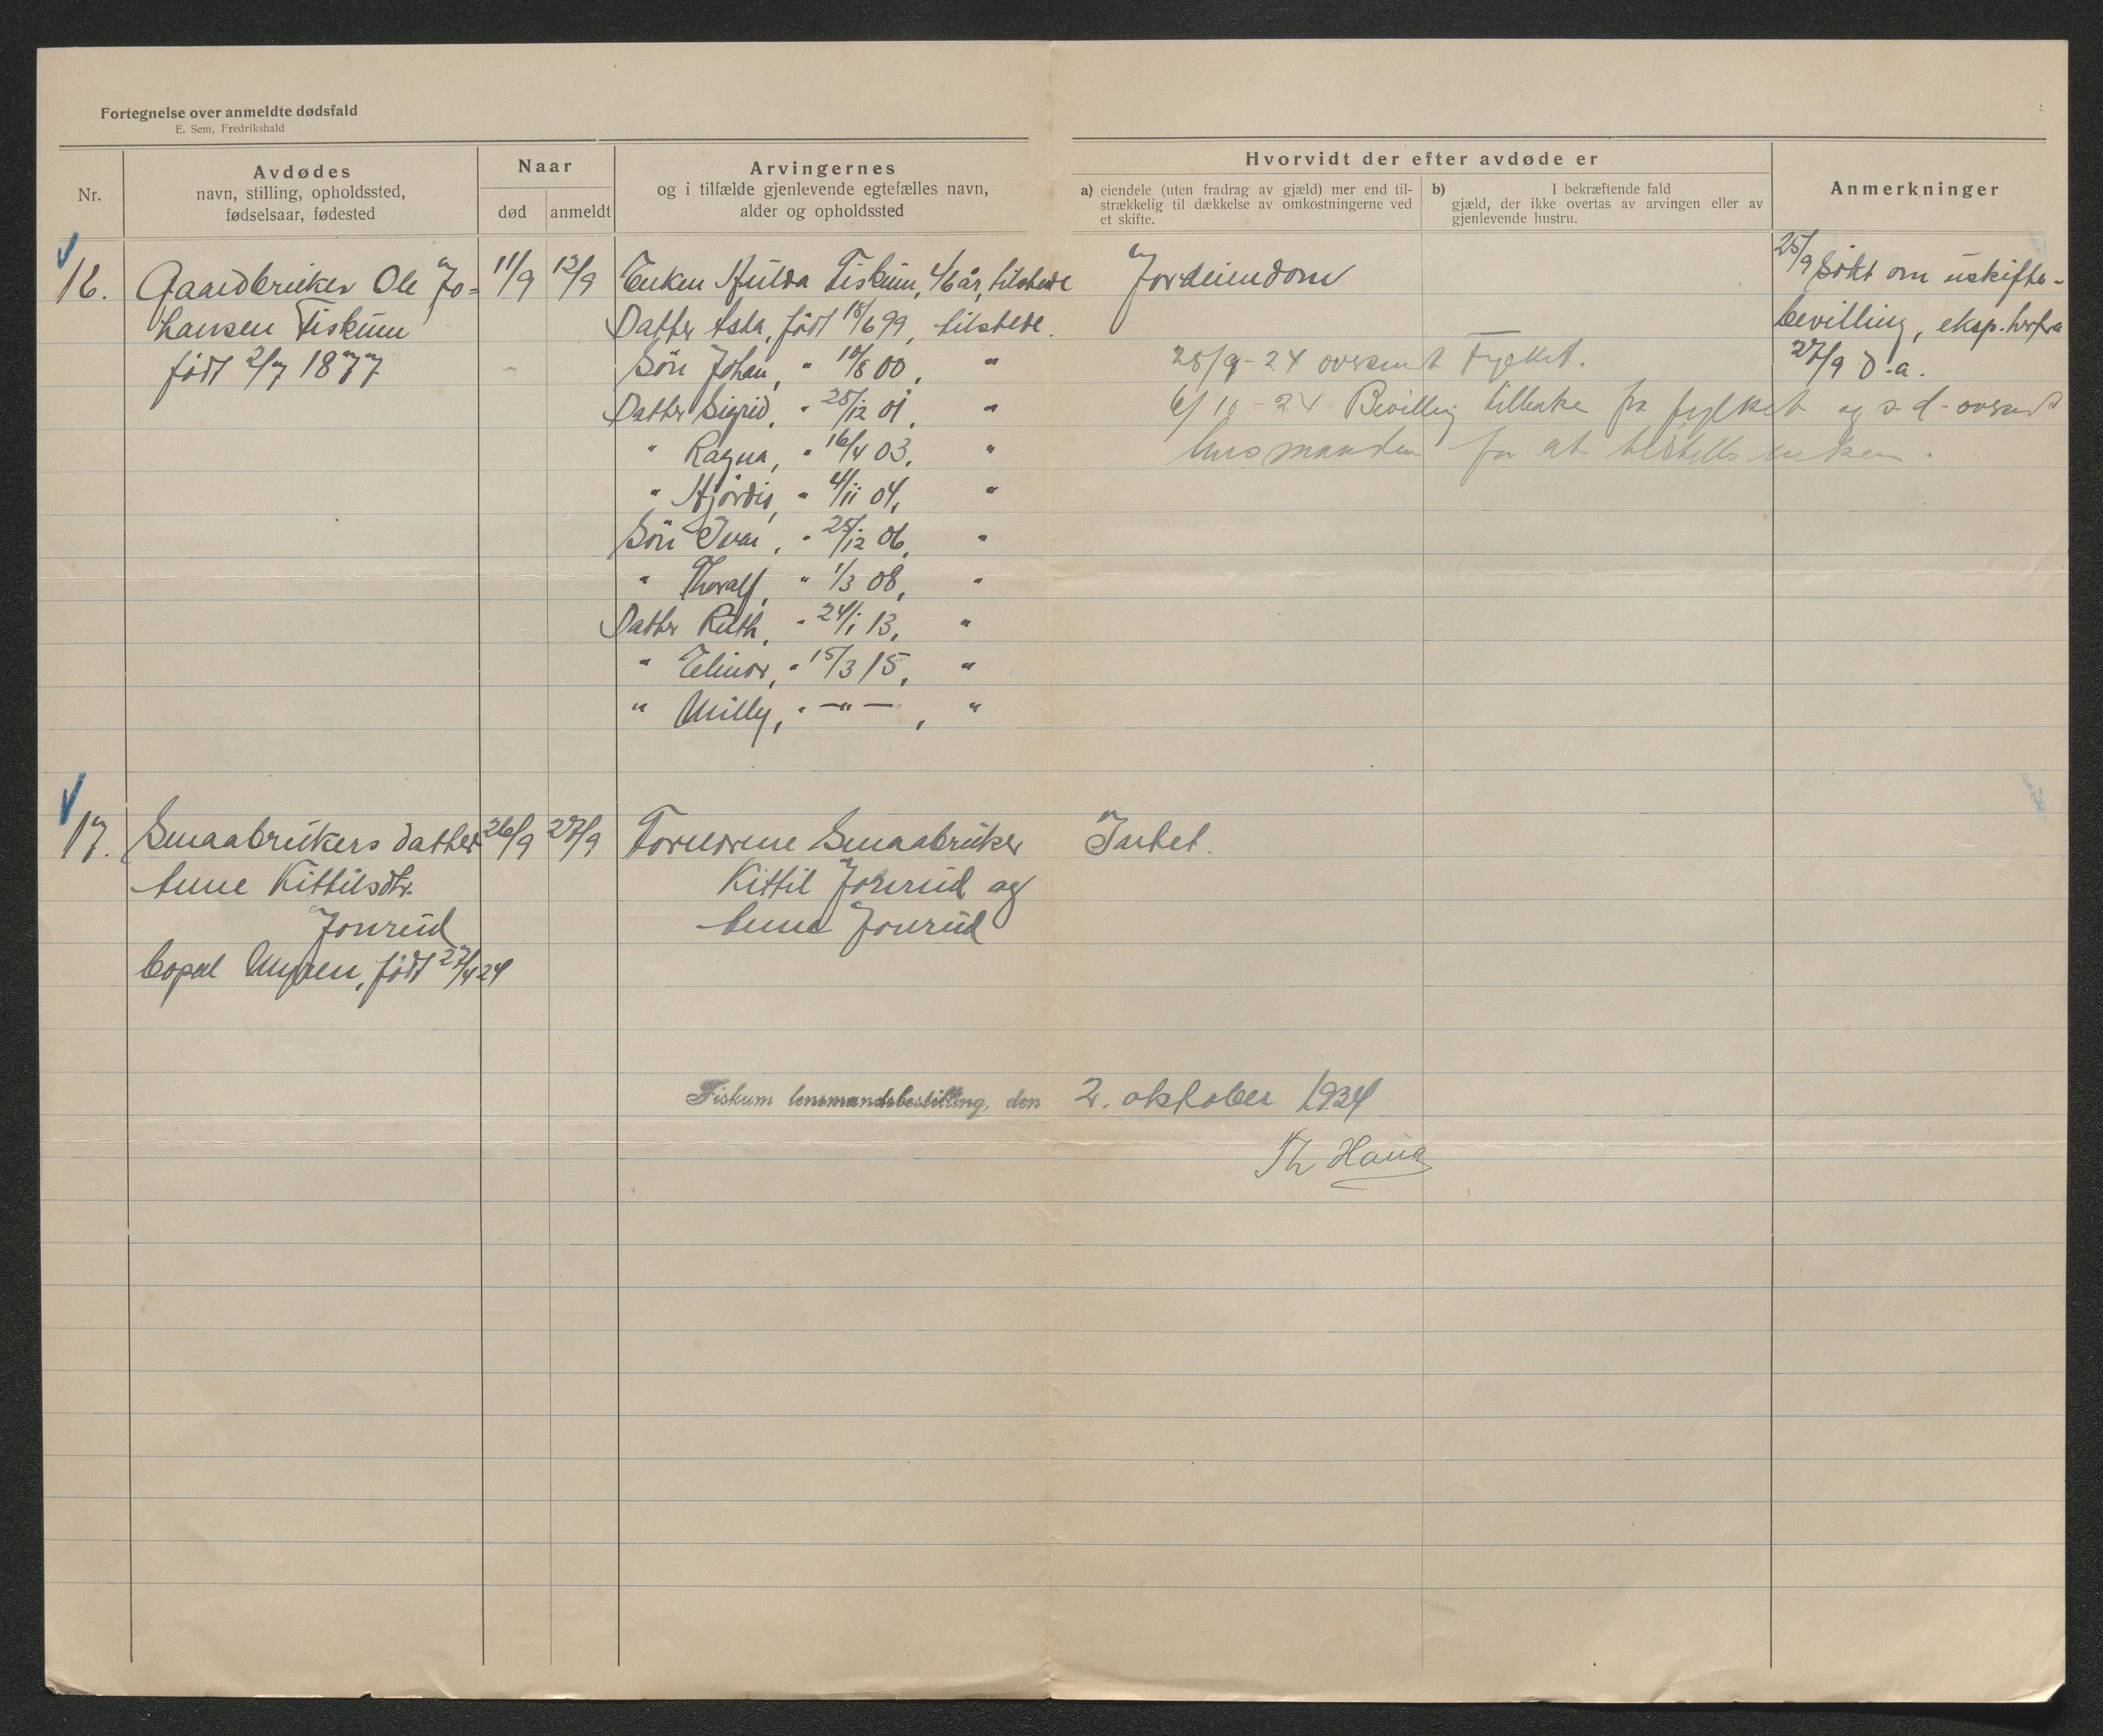 Fortegnelse over anmeldte dødsfald
E. Sem, Fredrikshald
Nr.
Avdødes
navn, stilling, opholdssted,
fødselsaar, fødested
Naar
død
anmeldt
Arvingernes
og i tilfælde gjenlevende egtefælles navn,
alder og opholdssted
Hvorvidt der efter avdøde er
a) eiendele (uten fradrag av gjæld) mer end til-
strækkelig til dækkelse av omkostningerne ved
et skifte.
b) I bekræftende fald
gjæld, der ikke overtas av arvingen eller av
gjenlevende hustru.
Anmerkninger
16.
Gaardbruker Ole Jo=
hansen Fiskum
født 2/7 1877
11/9
12/9
Enken Hulda Fiskum, 46 år, tilstede
Datter Asta, født 18/6 99, tilstede.
Søn Johan, " 10/8 00, "
Datter Sigrid, " 25/12 01, "
" Ragna, " 16/4 03, "
" Hjørdis, " 4/11 04, "
Søn Ivar, " 25/12 06, "
" Thoralf, " 1/3 08, "
Datter Ruth, " 24/1 13, "
" Elinor, " 15/3 15, "
" Milly, " —"— , "
Jordeiendom
25/9 Søkt om uskifte-
bevilling, eksp. herfra
27/9 d.a.
28/9-24 oversendt Fylket.
6/10-24 Bevilling tilbake fra fylket og s d. oversendt
lensmanden for at tilstilles enken.
17.
Smaabrukers datter
Anne Kittilsdtr.
Jonrud
Copal Myren, født 27/4 24
26/9
27/9
Forældrene Smaabruker
Kittil Jonrud og
Anne Jonrud
Intet.
Fiskum lensmandsbestilling, den 2. oktober 1924
Th Haug